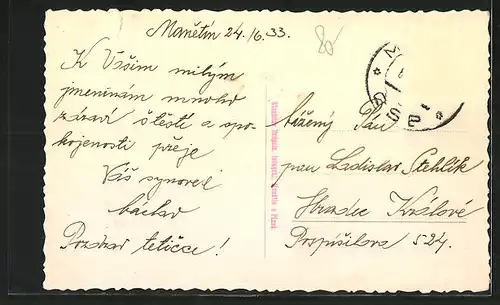 Manětín 24./6.33.
K Vašim milým
jmeninám mnoho
zdraví štěstí a spo-
kojenosti přeje
Váš synovec
Pozdrav tetičce!
Vážený Pán
pan Ladislav Stehlík
Hradec Králové
Pospíšilova 524.